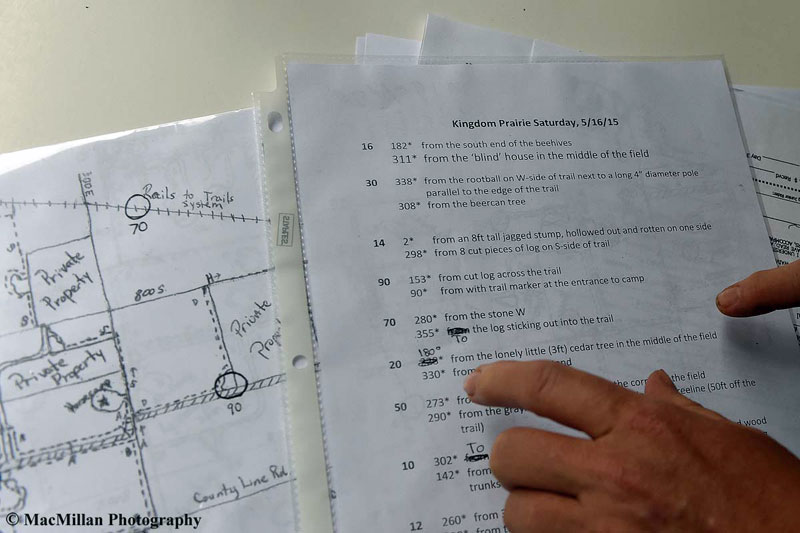 Kingdom Prairie Saturday, 5/16/15
16 182* from the south end of the beehives
311* from the 'blind' house in the middle of the field
30 338* from the rootball on W-side of trail next to a long 4" diameter pole
parallel to the edge of the trail
308* from the beercan tree
14 2* from an 8ft tall jagged stump, hollowed out and rotten on one side
298* from 8 cut pieces of log on S-side of trail
90 153* from cut log across the trail
90* from with trail marker at the entrance to camp
70 280* from the stone W
355* the log sticking out into the trail
To
180°
20 from the lonely little (3ft) cedar tree in the middle of the field
330* from
50 273* the field
290* from the gray treeline (50ft off the
trail)
wood
To
10 302*
142* from
trunks
12 260* from
Rails to Trails
System
70
300E
Private
Property
800S
Private
Private
Property
90
County Line Rd
STAPLES
© MacMillan Photography